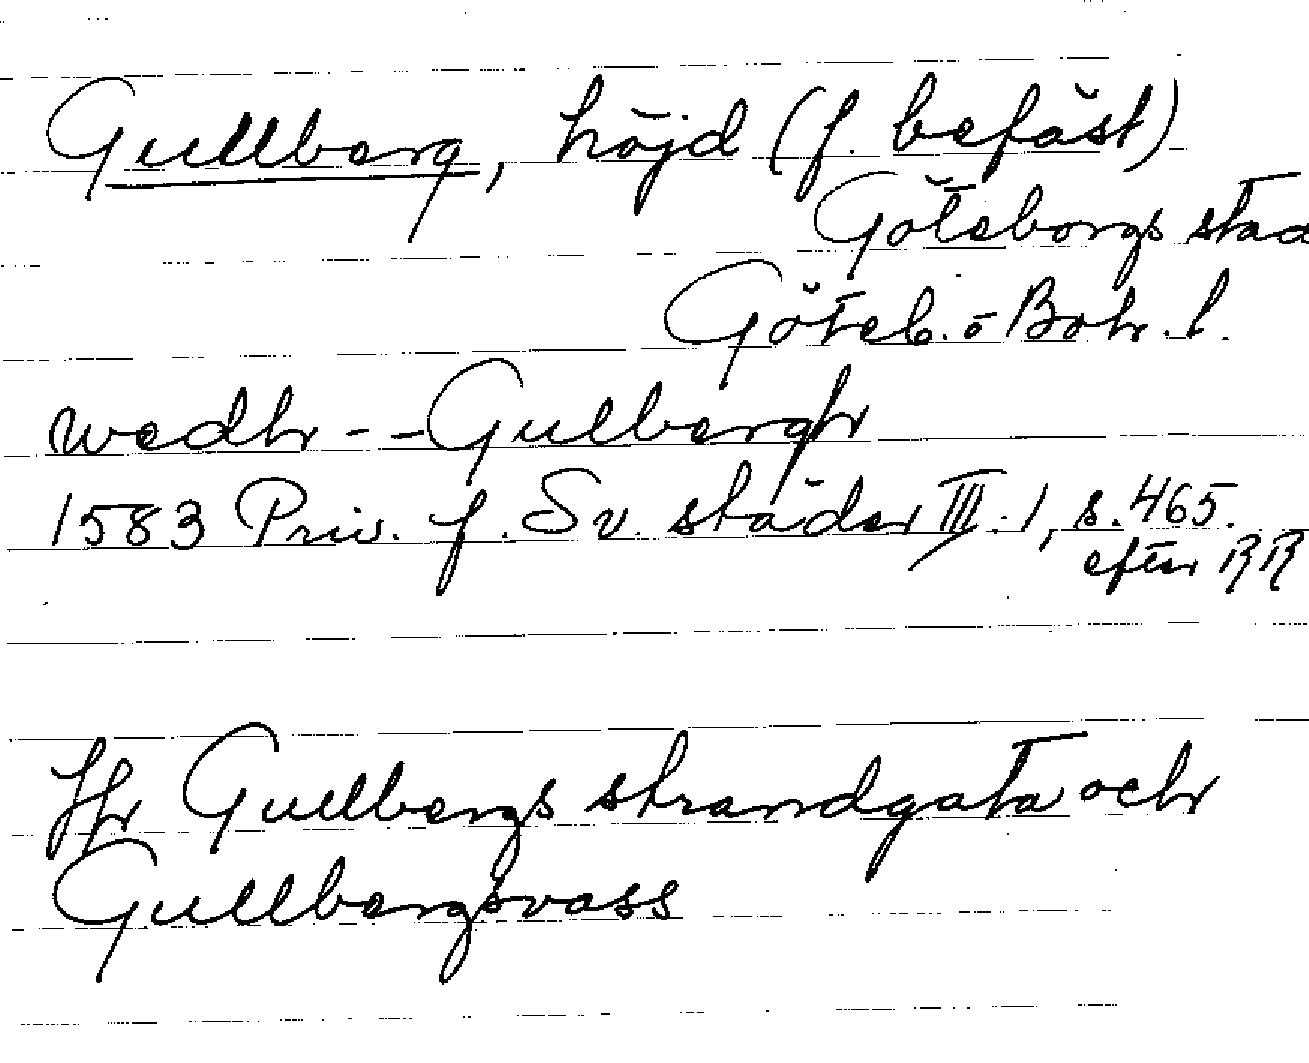 Gullberg, höjd (f. befäst)
Göteborgs stad
Göteb. o Boh. l.
wedh - - Gulbergh
1583 Priv. f. Sv. städer III. 1, s. 465.
efter RR
Jfr Gullbergs strandgata och
Gullbergsvass